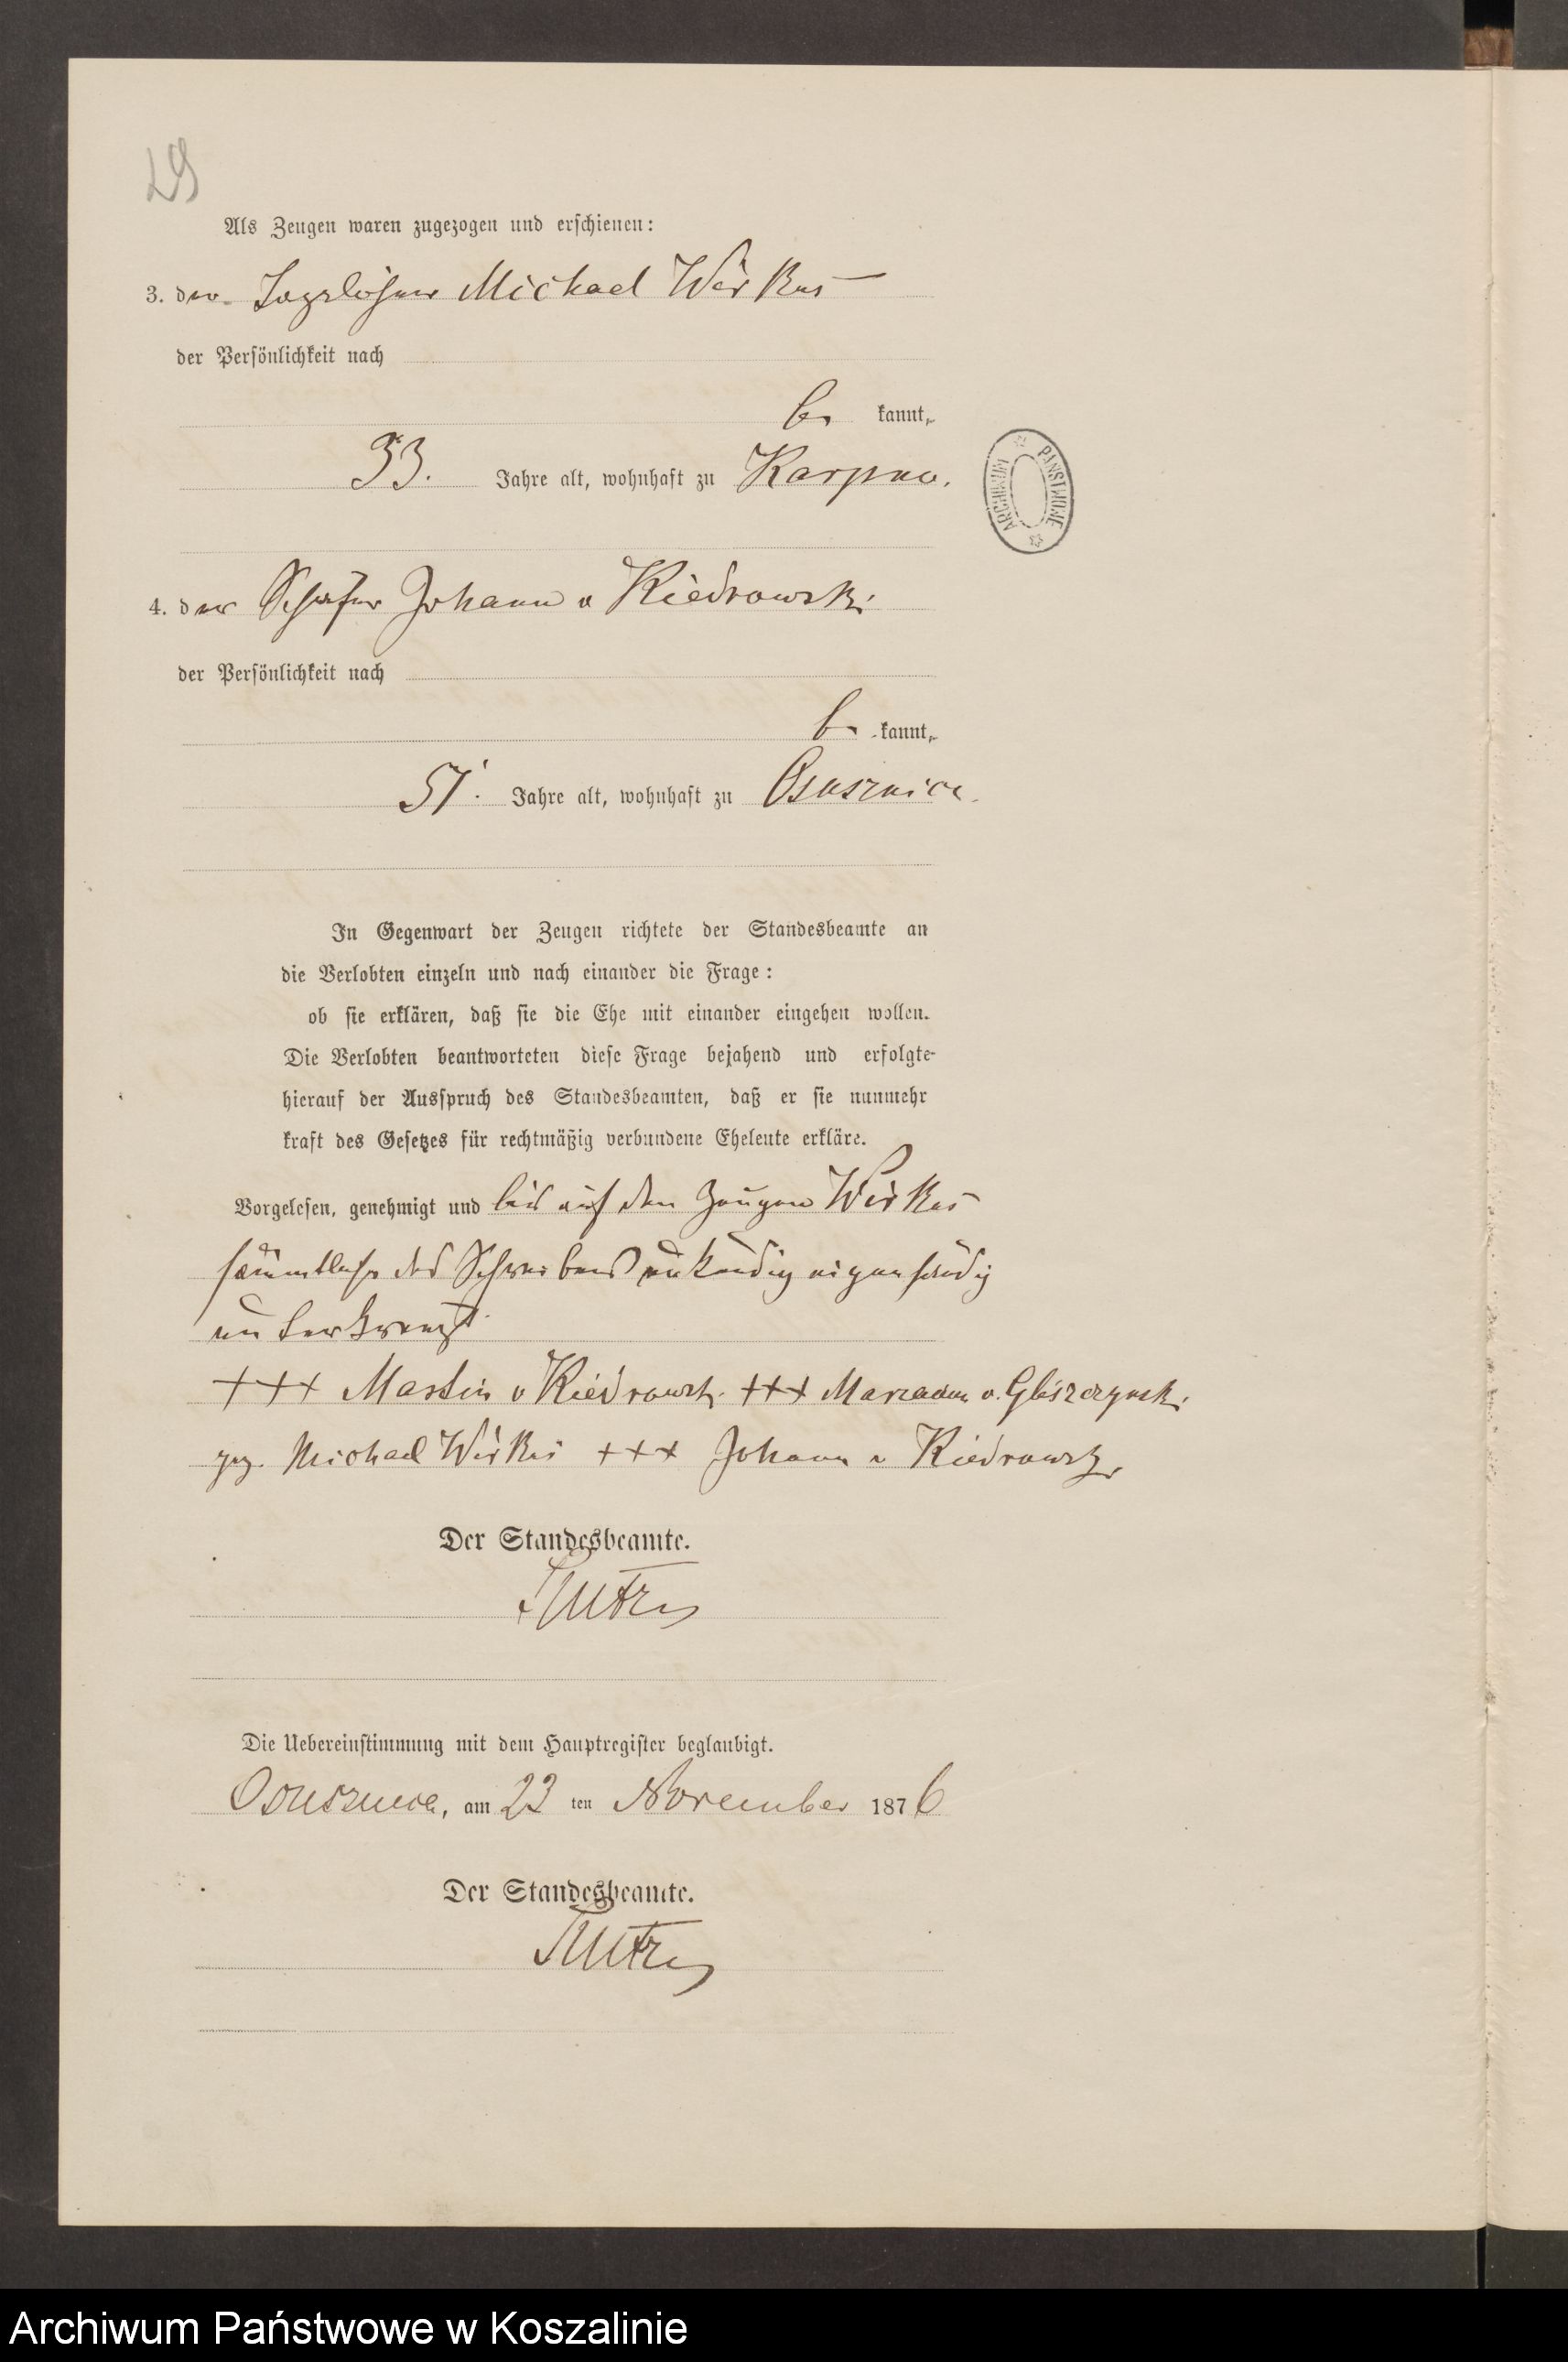 29
Als Zeugen waren zugezogen und erschienen:
3. der Tagelöhner Michael Wirkus
der Persönlichkeit nach
be kannt,
33. Jahre alt, wohnhaft zu Karpno.
4. der Schäfer Johann v Kiedrowski
der Persönlichkeit nach
be kannt,
51. Jahre alt, wohnhaft zu Osusznica.
ARCHIWUM PAŃSTWOWE
In Gegenwart der Zeugen richtete der Standesbeamte an
die Verlobten einzeln und nach einander die Frage:
ob sie erklären, daß sie die Ehe mit einander eingehen wollen.
Die Verlobten beantworteten diese Frage bejahend und erfolgte
hierauf der Ausspruch des Standesbeamten, daß er sie nunmehr
kraft des Gesetzes für rechtmäßig verbundene Eheleute erkläre.
Vorgelesen, genehmigt und bis auf den Zeugen Wirkus
sämmtliche des Schreibens unkundig eigenhändig
unterkreuzt
+++ Martin v Kiedrowski +++ Marianna v. Gliszczynski
gez. Michael Wirkus +++ Johann v Kiedrowski
Der Standesbeamte.
Die Uebereinstimmung mit dem Hauptregister beglaubigt.
Osusznica, am 23 ten November 1876
Der Standesbeamte.
Archiwum Państwowe w Koszalinie